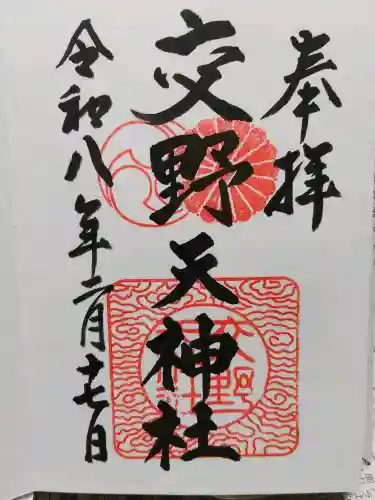 奉拝
交野天神社
令和八年二月十七日
交野天神社